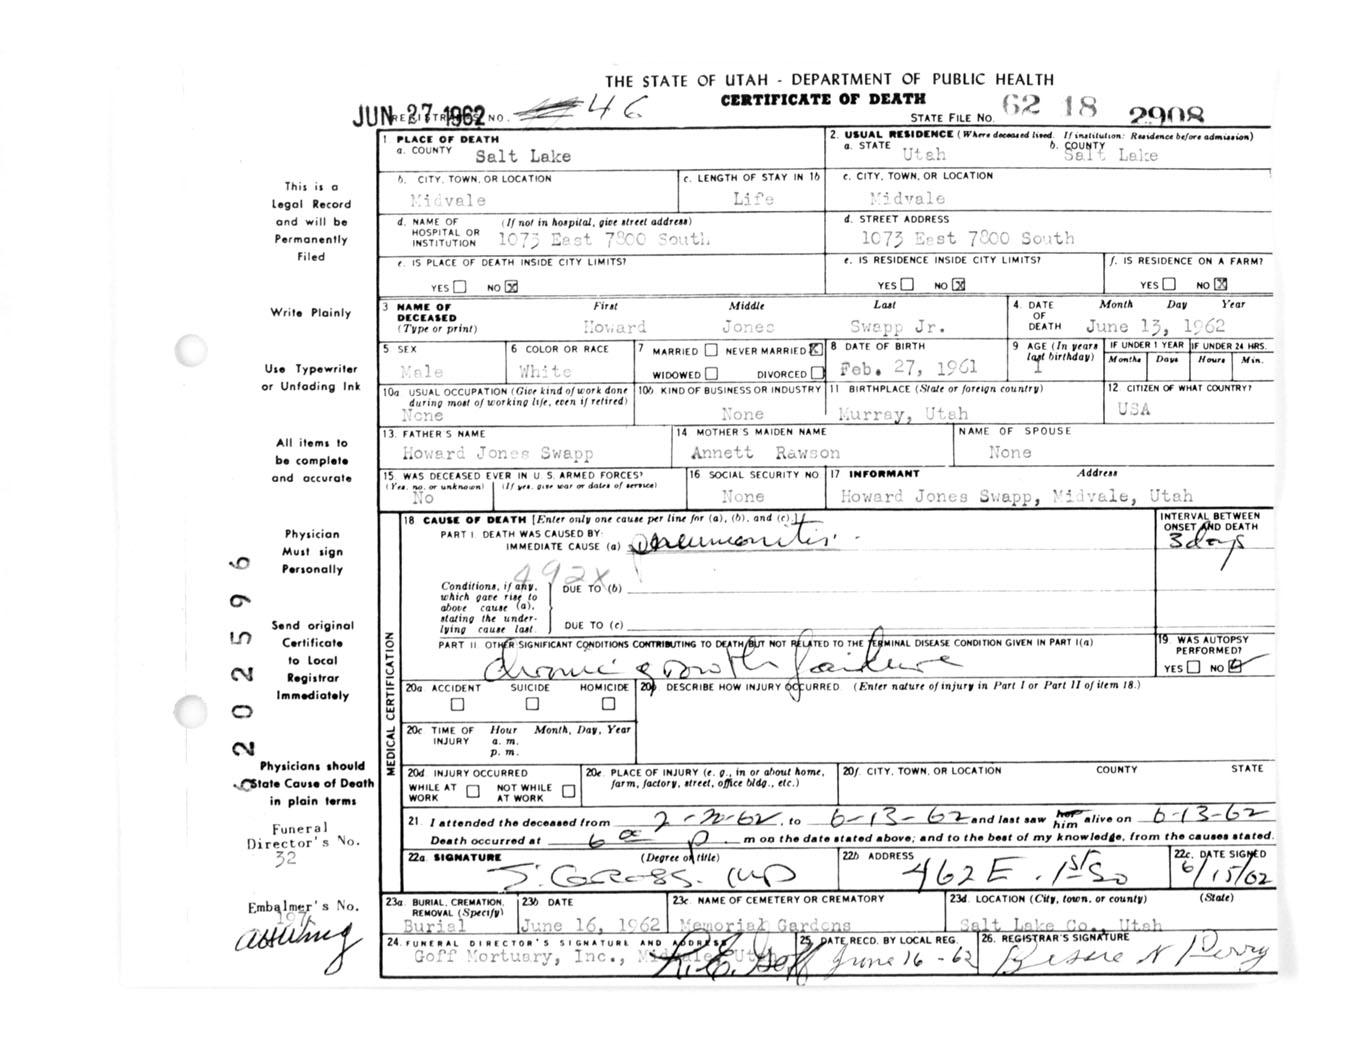 THE STATE OF UTAH - DEPARTMENT OF PUBLIC HEALTH
CERTIFICATE OF DEATH
JUN 27 1962
REGISTRAR'S NO. 46
STATE FILE NO. 62 18 2908
1 PLACE OF DEATH
a. COUNTY Salt Lake
2. USUAL RESIDENCE (Where deceased lived. If institution: Residence before admission)
a. STATE Utah b. COUNTY Salt Lake
b. CITY, TOWN, OR LOCATION Midvale
c. LENGTH OF STAY IN 1b Life
c. CITY, TOWN, OR LOCATION Midvale
d. NAME OF HOSPITAL OR INSTITUTION (If not in hospital, give street address) 1073 East 7800 South
d. STREET ADDRESS 1073 East 7800 South
e. IS PLACE OF DEATH INSIDE CITY LIMITS?
YES NO X
e. IS RESIDENCE INSIDE CITY LIMITS?
YES NO X
f. IS RESIDENCE ON A FARM?
YES NO X
3 NAME OF DECEASED (Type or print)
First Middle Last
Howard Jones Swapp Jr.
4. DATE OF DEATH Month Day Year
June 13, 1962
5 SEX Male
6 COLOR OR RACE White
7 MARRIED NEVER MARRIED X
WIDOWED DIVORCED
8 DATE OF BIRTH Feb. 27, 1961
9 AGE (In years last birthday) 1
IF UNDER 1 YEAR Months Days
IF UNDER 24 HRS. Hours Min.
10a USUAL OCCUPATION (Give kind of work done during most of working life, even if retired) None
10b KIND OF BUSINESS OR INDUSTRY None
11 BIRTHPLACE (State or foreign country) Murray, Utah
12 CITIZEN OF WHAT COUNTRY? USA
13. FATHER'S NAME Howard Jones Swapp
14 MOTHER'S MAIDEN NAME Annett Rawson
NAME OF SPOUSE None
15 WAS DECEASED EVER IN U. S. ARMED FORCES?
(Yes, no, or unknown) (If yes, give war or dates of service)
No
16 SOCIAL SECURITY NO None
17 INFORMANT Address
Howard Jones Swapp, Midvale, Utah
18 CAUSE OF DEATH [Enter only one cause per line for (a), (b), and (c).]
PART I. DEATH WAS CAUSED BY:
IMMEDIATE CAUSE (a) pneumonitis
INTERVAL BETWEEN ONSET AND DEATH
3 days
492X
Conditions, if any, which gave rise to above cause (a), stating the underlying cause last.
DUE TO (b)
DUE TO (c)
PART II. OTHER SIGNIFICANT CONDITIONS CONTRIBUTING TO DEATH BUT NOT RELATED TO THE TERMINAL DISEASE CONDITION GIVEN IN PART I(a)
chronic growth failure
19 WAS AUTOPSY PERFORMED?
YES NO
20a ACCIDENT SUICIDE HOMICIDE
20b DESCRIBE HOW INJURY OCCURRED. (Enter nature of injury in Part I or Part II of item 18.)
20c TIME OF INJURY Hour Month, Day, Year
a. m.
p. m.
20d. INJURY OCCURRED
WHILE AT WORK NOT WHILE AT WORK
20e. PLACE OF INJURY (e. g., in or about home, farm, factory, street, office bldg., etc.)
20f. CITY, TOWN, OR LOCATION COUNTY STATE
MEDICAL CERTIFICATION
21. I attended the deceased from to 6-13-62 and last saw her him alive on 6-13-62
Death occurred at 6 m on the date stated above; and to the best of my knowledge, from the causes stated.
22a. SIGNATURE (Degree or title)
22b ADDRESS 462 E. 1st So
22c. DATE SIGNED 6/15/62
23a. BURIAL, CREMATION, REMOVAL (Specify) Burial
23b DATE June 16, 1962
23c. NAME OF CEMETERY OR CREMATORY Memorial Gardens
23d. LOCATION (City, town, or county) (State)
Salt Lake Co., Utah
24. FUNERAL DIRECTOR'S SIGNATURE AND ADDRESS
Goff Mortuary, Inc., Midvale Utah
R. E. Goff
25. DATE RECD. BY LOCAL REG. June 16-62
26. REGISTRAR'S SIGNATURE Bessie N Perry
This is a
Legal Record
and will be
Permanently
Filed
Write Plainly
Use Typewriter
or Unfading Ink
All items to
be complete
and accurate
Physician
Must sign
Personally
Send original
Certificate
to Local
Registrar
Immediately
Physicians should
State Cause of Death
in plain terms
Funeral
Director's No.
32
Embalmer's No.
202596